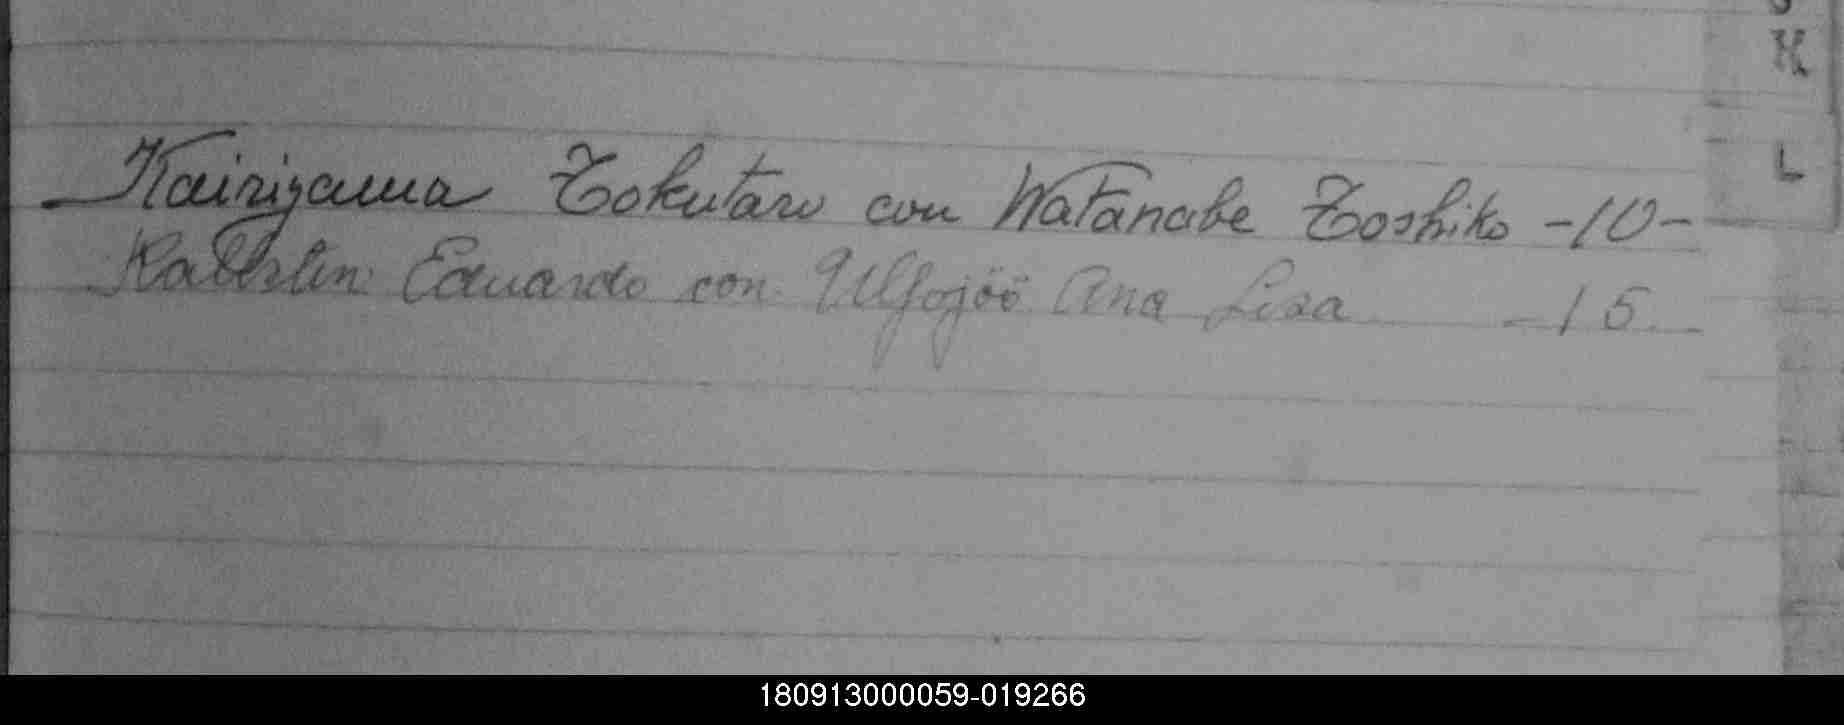 K
L
Kairiyama Tokutaro con Watanabe Toshiko -10-
Eduardo con Ana Lisa -15-
180913000059-019266